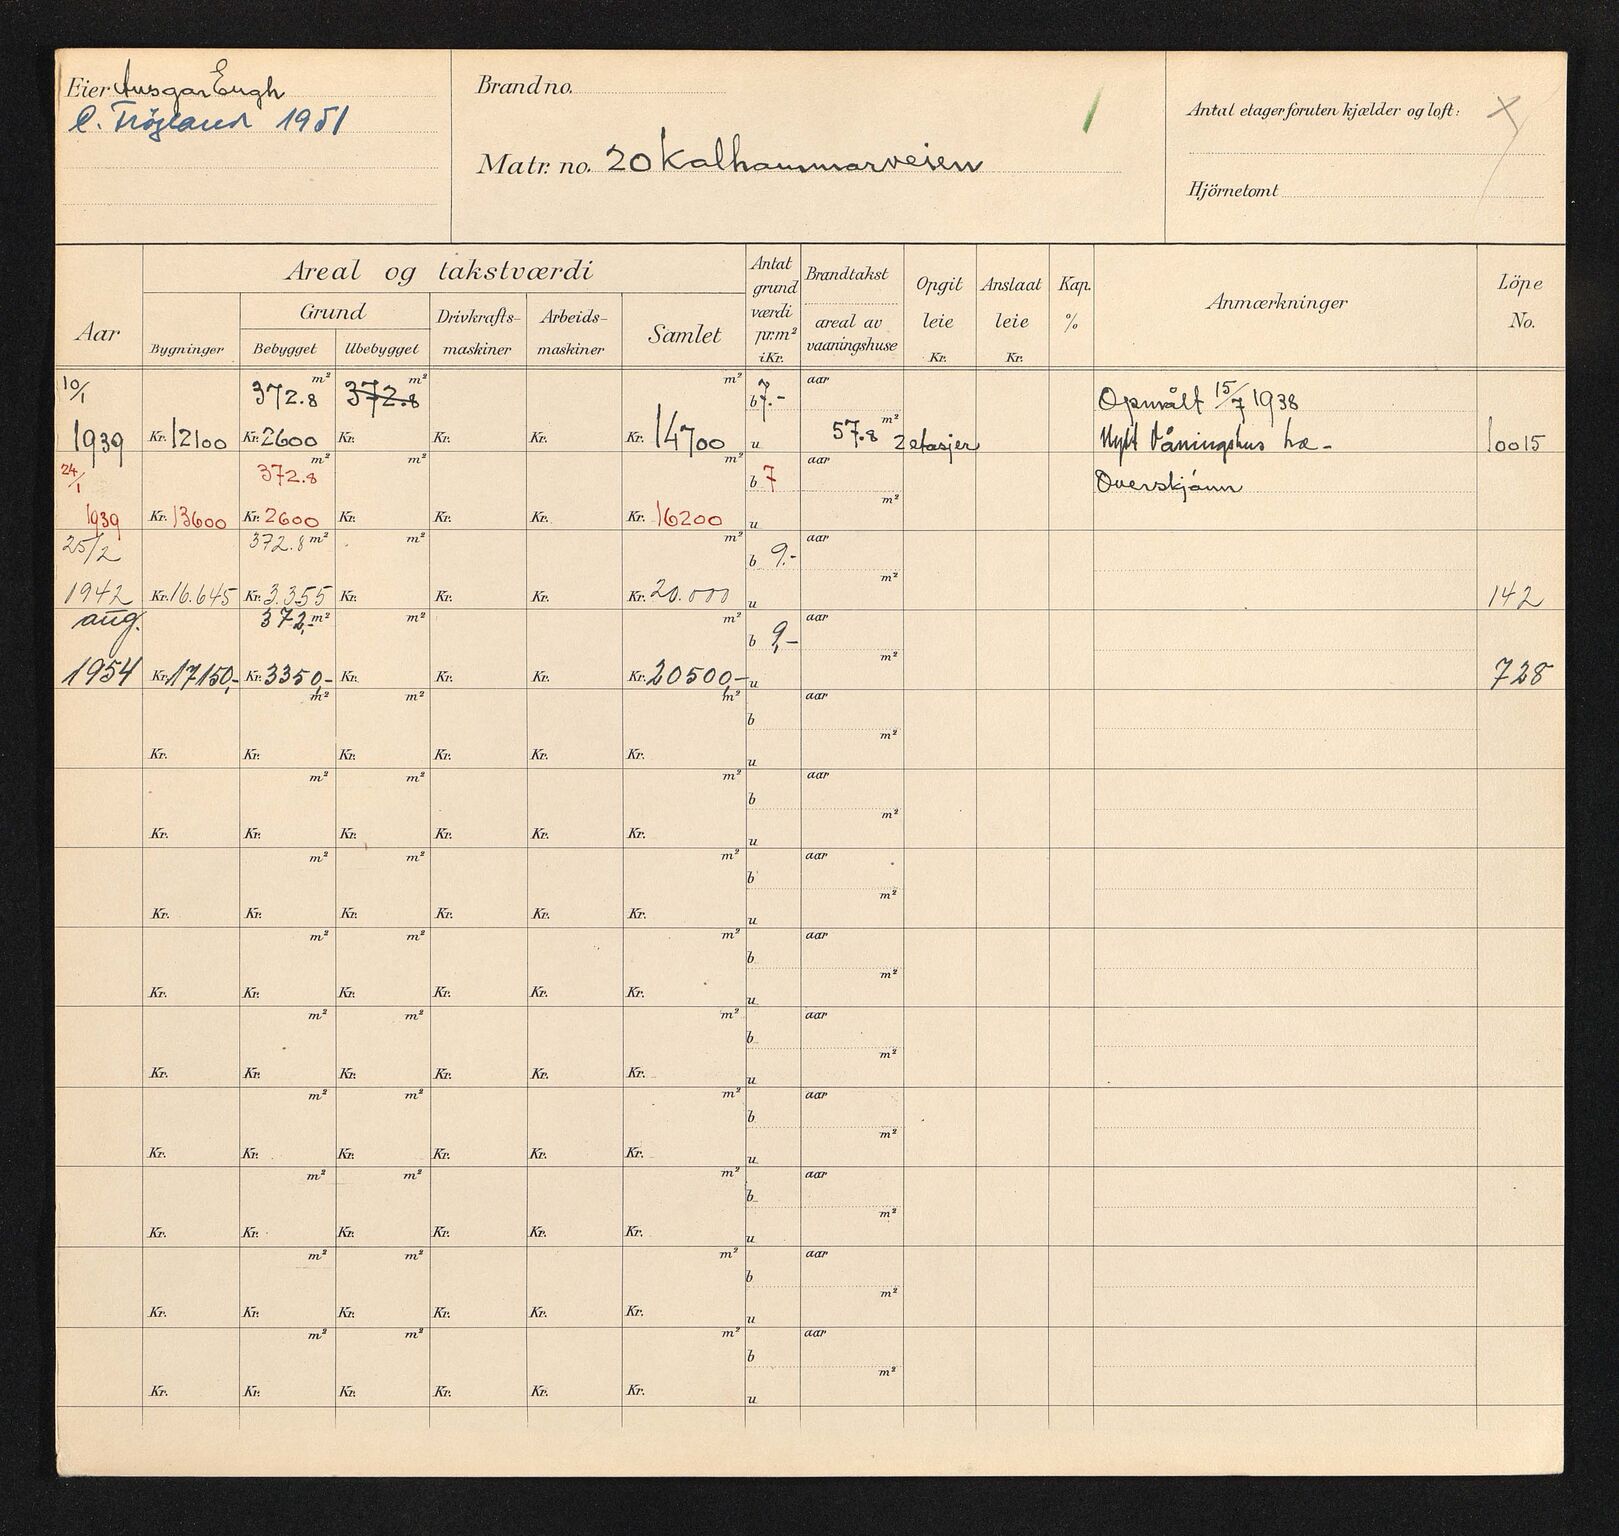 Eier Ansgar Engh
C. Tröyland 1951
Brandno.
Matr. no. 20 Kalhammarveien
Antal etager foruten kjælder og loft:
Hjörnetomt
Aar
Areal og takstværdi
Bygninger
Grund
Bebygget Ubebygget
Drivkrafts-maskiner
Arbeids-maskiner
Samlet
Antat grund værdi pr.m² i Kr.
Brandtakst
areal av vaaningshuse
Opgit leie Kr.
Anslaat leie Kr.
Kap. %
Anmærkninger
Löpe No.
10/1 372.8 m² 372.8 m² m² b 7.- aar Opmålt 15/7 1938
1939 Kr. 12100 Kr. 2600 Kr. Kr. Kr. Kr. 14700 u 57.8 m² 2 etasjer Nytt Våningshus træ - 10015
24/1 372.8 m² m² m² b 7 aar Overskjønn
1939 Kr. 13600 Kr. 2600 Kr. Kr. Kr. Kr. 16200 u m²
25/2 372.8 m² m² m² b 9.- aar
1942 Kr. 16.645 Kr. 3.355 Kr. Kr. Kr. Kr. 20.000 u m² 142
aug. 372,- m² m² m² b 9,- aar
1954 Kr. 17150,- Kr. 3350,- Kr. Kr. Kr. Kr. 20500,- u m² 728
m² m² m² b aar
Kr. Kr. Kr. Kr. Kr. Kr. u m²
m² m² m² b aar
Kr. Kr. Kr. Kr. Kr. Kr. u m²
m² m² m² b aar
Kr. Kr. Kr. Kr. Kr. Kr. u m²
m² m² m² b aar
Kr. Kr. Kr. Kr. Kr. Kr. u m²
m² m² m² b aar
Kr. Kr. Kr. Kr. Kr. Kr. u m²
m² m² m² b aar
Kr. Kr. Kr. Kr. Kr. Kr. u m²
m² m² m² b aar
Kr. Kr. Kr. Kr. Kr. Kr. u m²
m² m² m² b aar
Kr. Kr. Kr. Kr. Kr. Kr. u m²
m² m² m² b aar
Kr. Kr. Kr. Kr. Kr. Kr. u m²